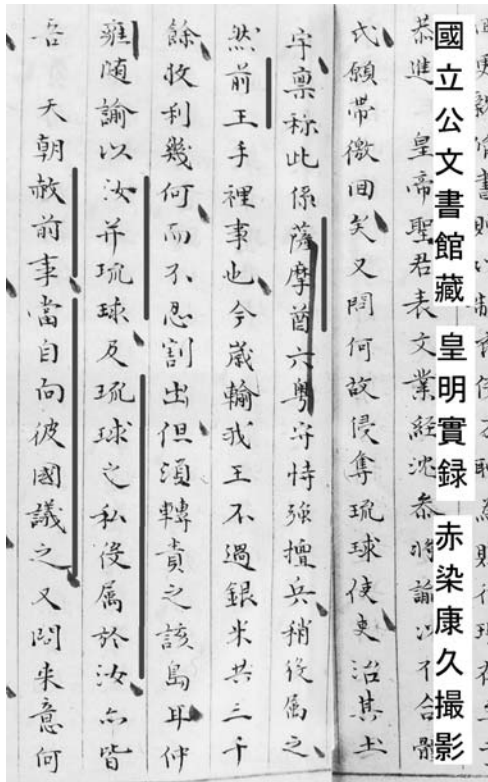 國立公文書館藏 皇明實録 赤染康久撮影
恭進 皇帝聖君表文業経沈叅将諭以不合體
式願带微回矣又問何故侵奪琉球使吏治其土
宇禀称此係薩摩酋六粤守恃强擅兵稍役属之
然前王手裡事也今歳輸我王不過銀米共三千
餘收利幾何而不忍割出但湏轉責之該島耳仲
雍随諭以汝并琉球及琉球之私役属於汝亦皆
吾 天朝赦前事當自向彼國議之又問来意何